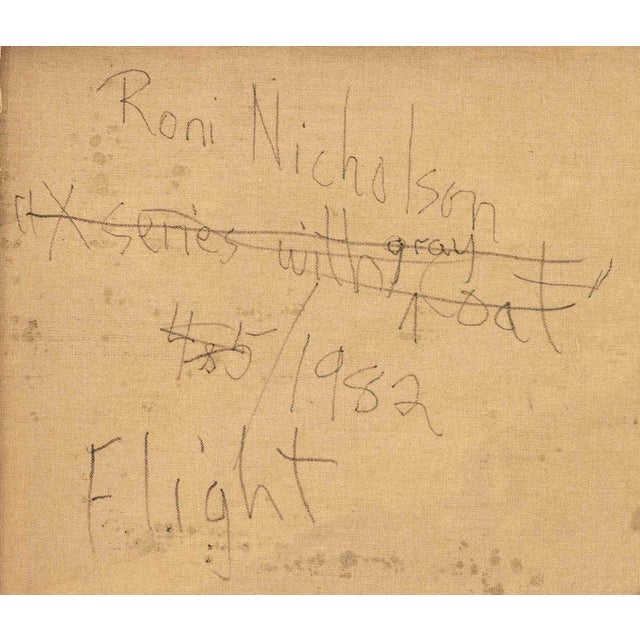 Roni Nicholson
"X series with gray
1982
Flight